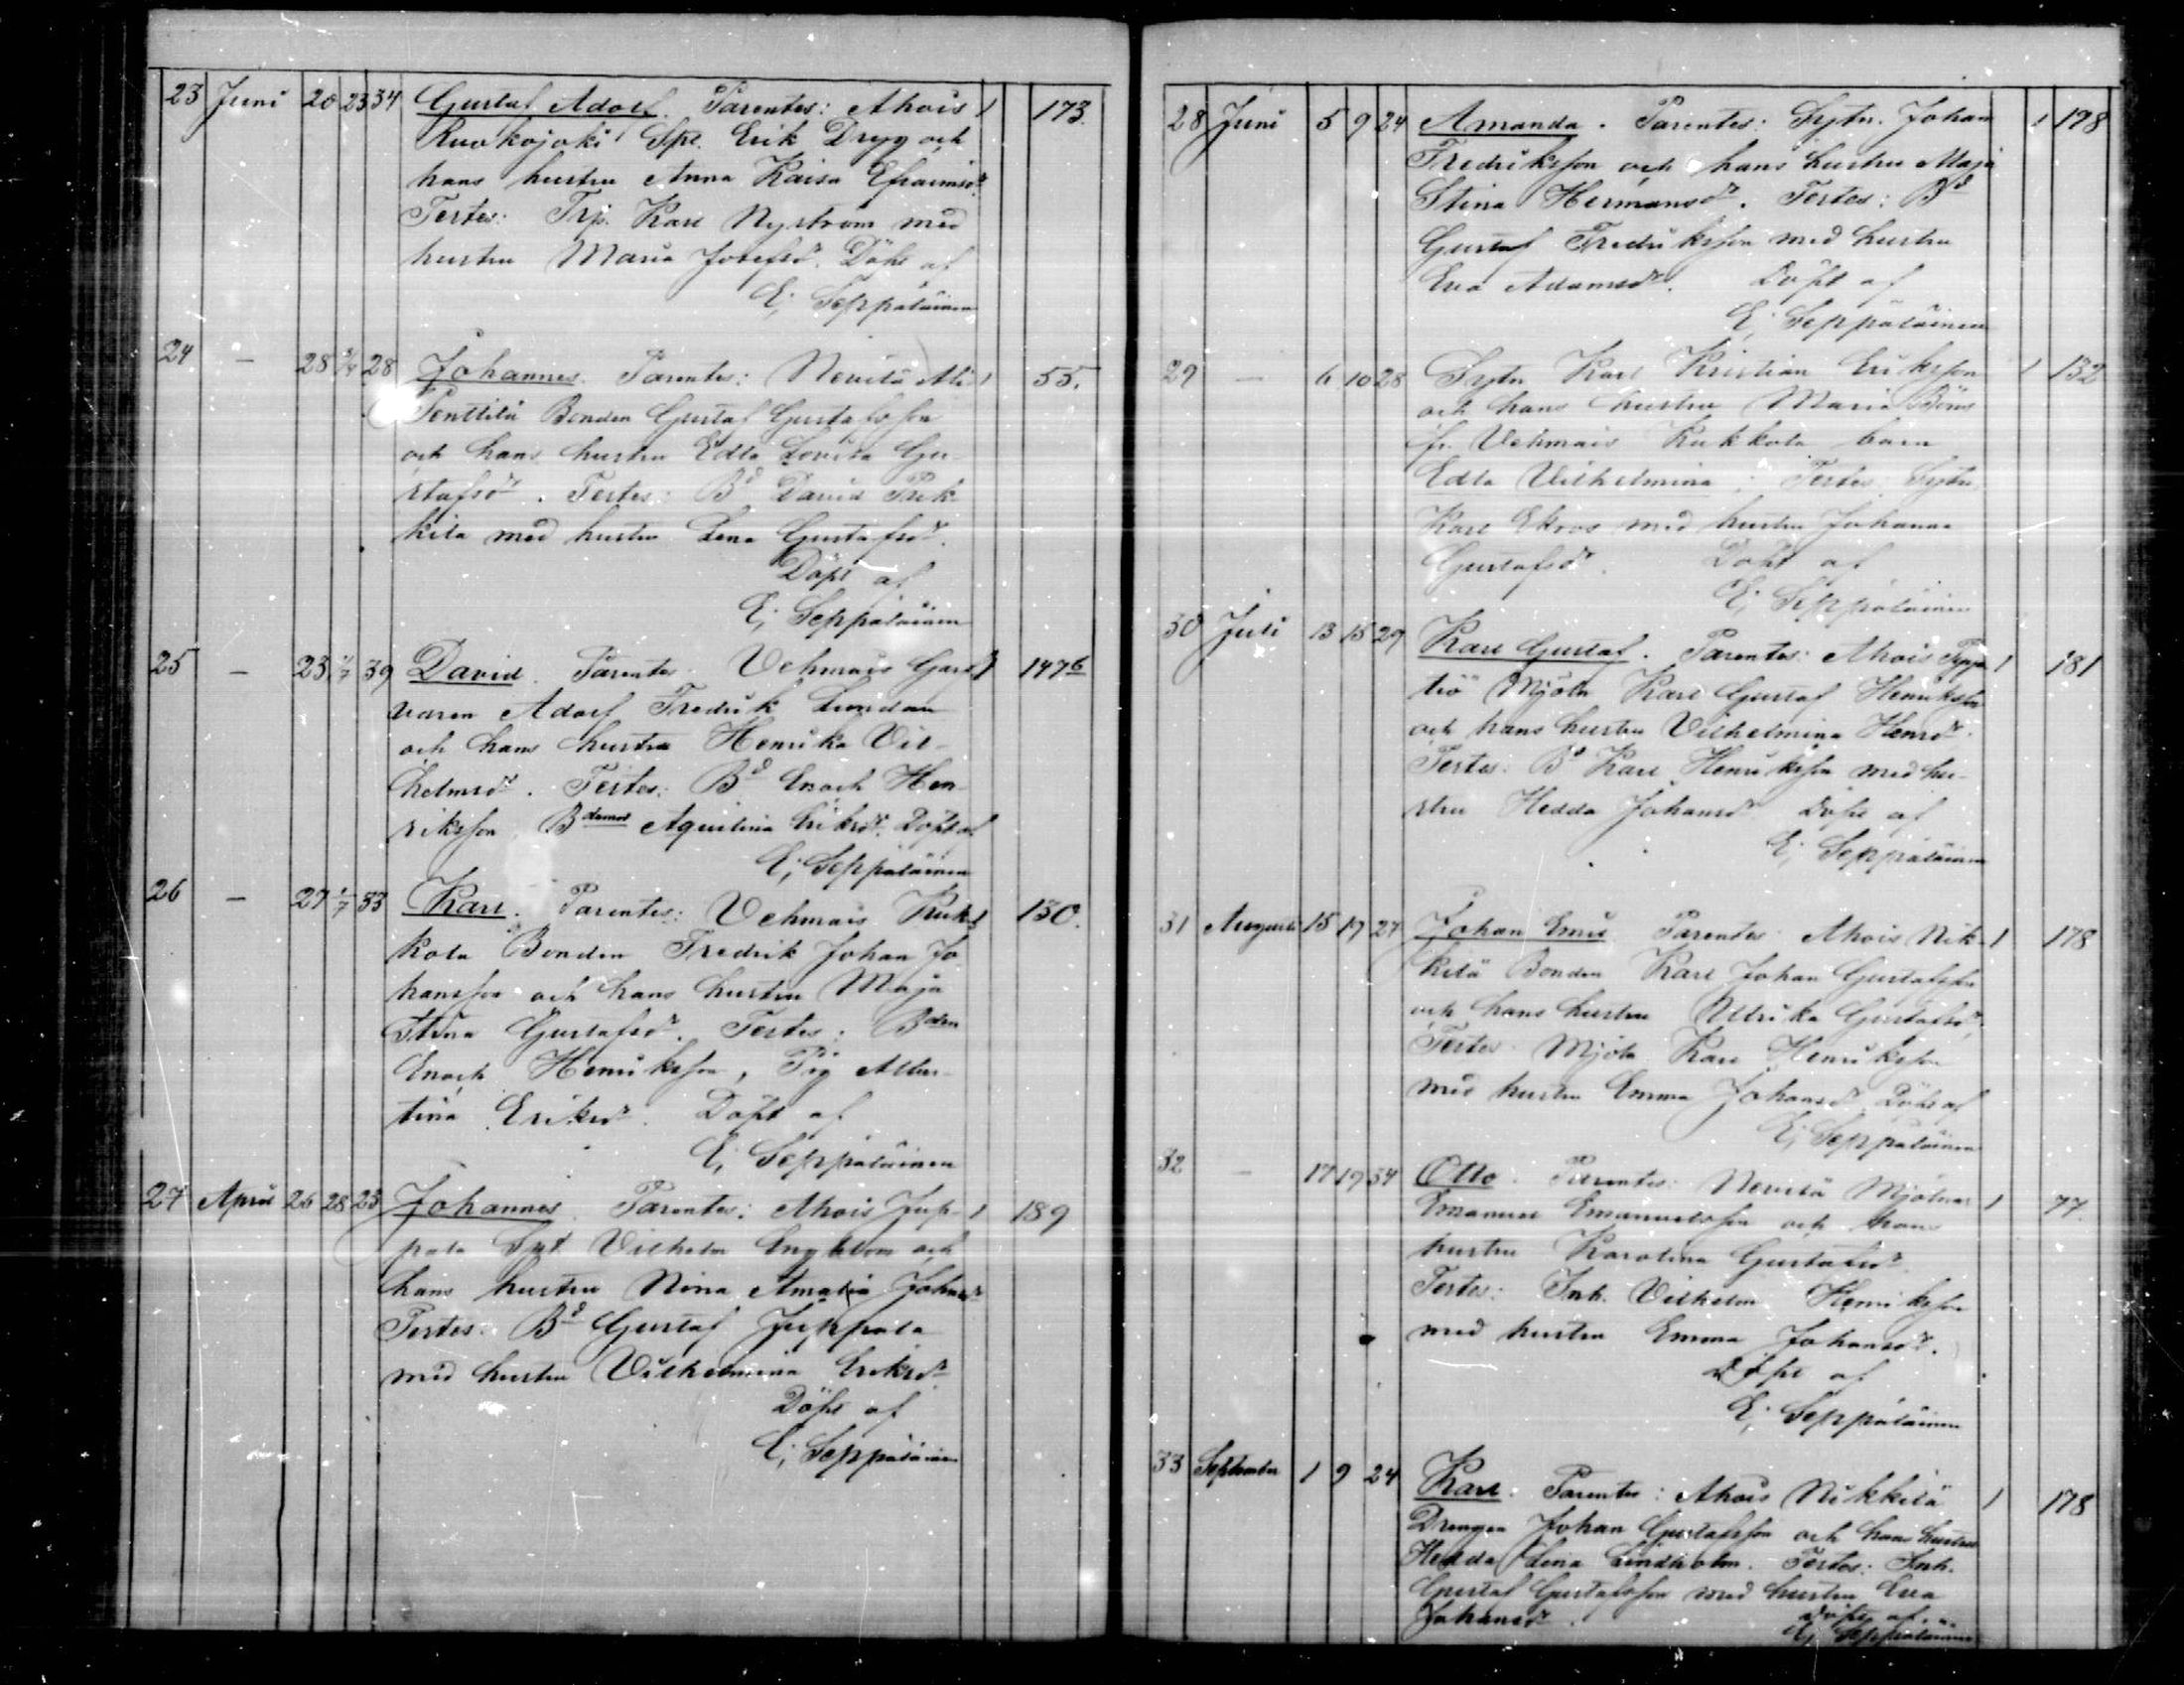 23 Juni 20 23 34 Gustaf Adolf. Parentes: Ahois 1 173.
Ruokojoki Spt. Erik Drygg och
hans hustru Anna Kaisa Efraimsdr.
Testes: Trp. Karl Nyström med
hustru Maria Josefsdr. Döpt af
E; Seppäläinen
24 — 28 28 Johannes. Parentes: Nevilä Ali 1 55.
Penttilä Bonden Gustaf Gustafsson
och hans hustru Edla Lovisa Gu-
stafsdr. Testes: Bd David
kilä med hustru Lena Gustafsdr.
Döpt af
E; Seppäläinen
25 — 23 1/7 39 David. Parentes Vehmais 1 147
varen Adolf Fredrik Lundan
och hans hustru Henrika Vil-
helmsdr. Testes: Bd Enoch Hen-
riksson Aquilina Eriksdr. Döpt af
E; Seppäläinen
26 — 27 1/7 33 Karl. Parentes: Vehmais Kuk- 1 130.
kola Bonden Fredrik Johan Jo
hansson och hans hustru Maja
Stina Gustafsdr. Testes: Bden
Enoch Henriksson, Pig Alber-
tina Eriksdr. Döpt af
E; Seppäläinen
27 April 26 28 23 Johannes. Parentes: Ahois Jup- 1 189
pala Spt. Vilhelm Engblom och
hans hustru Nina Amalia Johansdr
Testes. Bd Gustaf Juppala
med hustru Vilhelmina Eriksdr
Döpt af
E; Seppäläinen
28 Juni 5 9 24 Amanda. Parentes: Sytn. Johan 1 198
Fredriksson och hans hustru Maja
Stina Hermansdr. Testes: Bd
Gustaf Fredriksson med hustru
Eva Adamsdr. Döpt af
E; Seppäläinen
29 — 6 10 28 Sytn Karl Kristian Eriksson 1 132
och hans hustru Maria
fr. Vehmais Kukkola barn
Edla Vilhelmina; Testes: Sytn.
Karl Ekroos med hustru Johanna
Gustafsdr. Döpt af
E; Seppäläinen
30 Juli 13 15 29 Karl Gustaf. Parentes: Ahois 1 181
Mjöln Karl Gustaf Henriksson
och hans hustru Vilhelmina Henrdr.
Testes: Bd Karl Henriksson med hu-
stru Hedda Johansdr Döpt af
E; Seppäläinen
31 Augusti 15 17 27 Johan Emil Parentes Ahois Nik- 1 178
kilä Bonden Karl Johan Gustafsson
och hans hustru Ulrika Gustafsdr.
Testes Mjöln Karl Henriksson
med hustru Emma Johansdr. Döpt af
E; Seppäläinen
32 — 17 19 34 Otto. Parentes: Nevilä Mjölnar 1 77.
Emanuel Emanuelsson och hans
hustru Karolina Gustafsdr.
Testes: Inh. Vilhelm Henriksson
med hustru Emma Johansdr.
Döpt af
E; Seppäläinen
33 September 1 9 24 Karl. Parentes: Ahois Nikkilä 1 178
Drengen Johan Gustafsson och hans hustru
Hedda Lina Lindholm. Testes: Inh.
Gustaf Gustafsson med hustru Eva
Johansdr. Döpt af
E; Seppäläinen